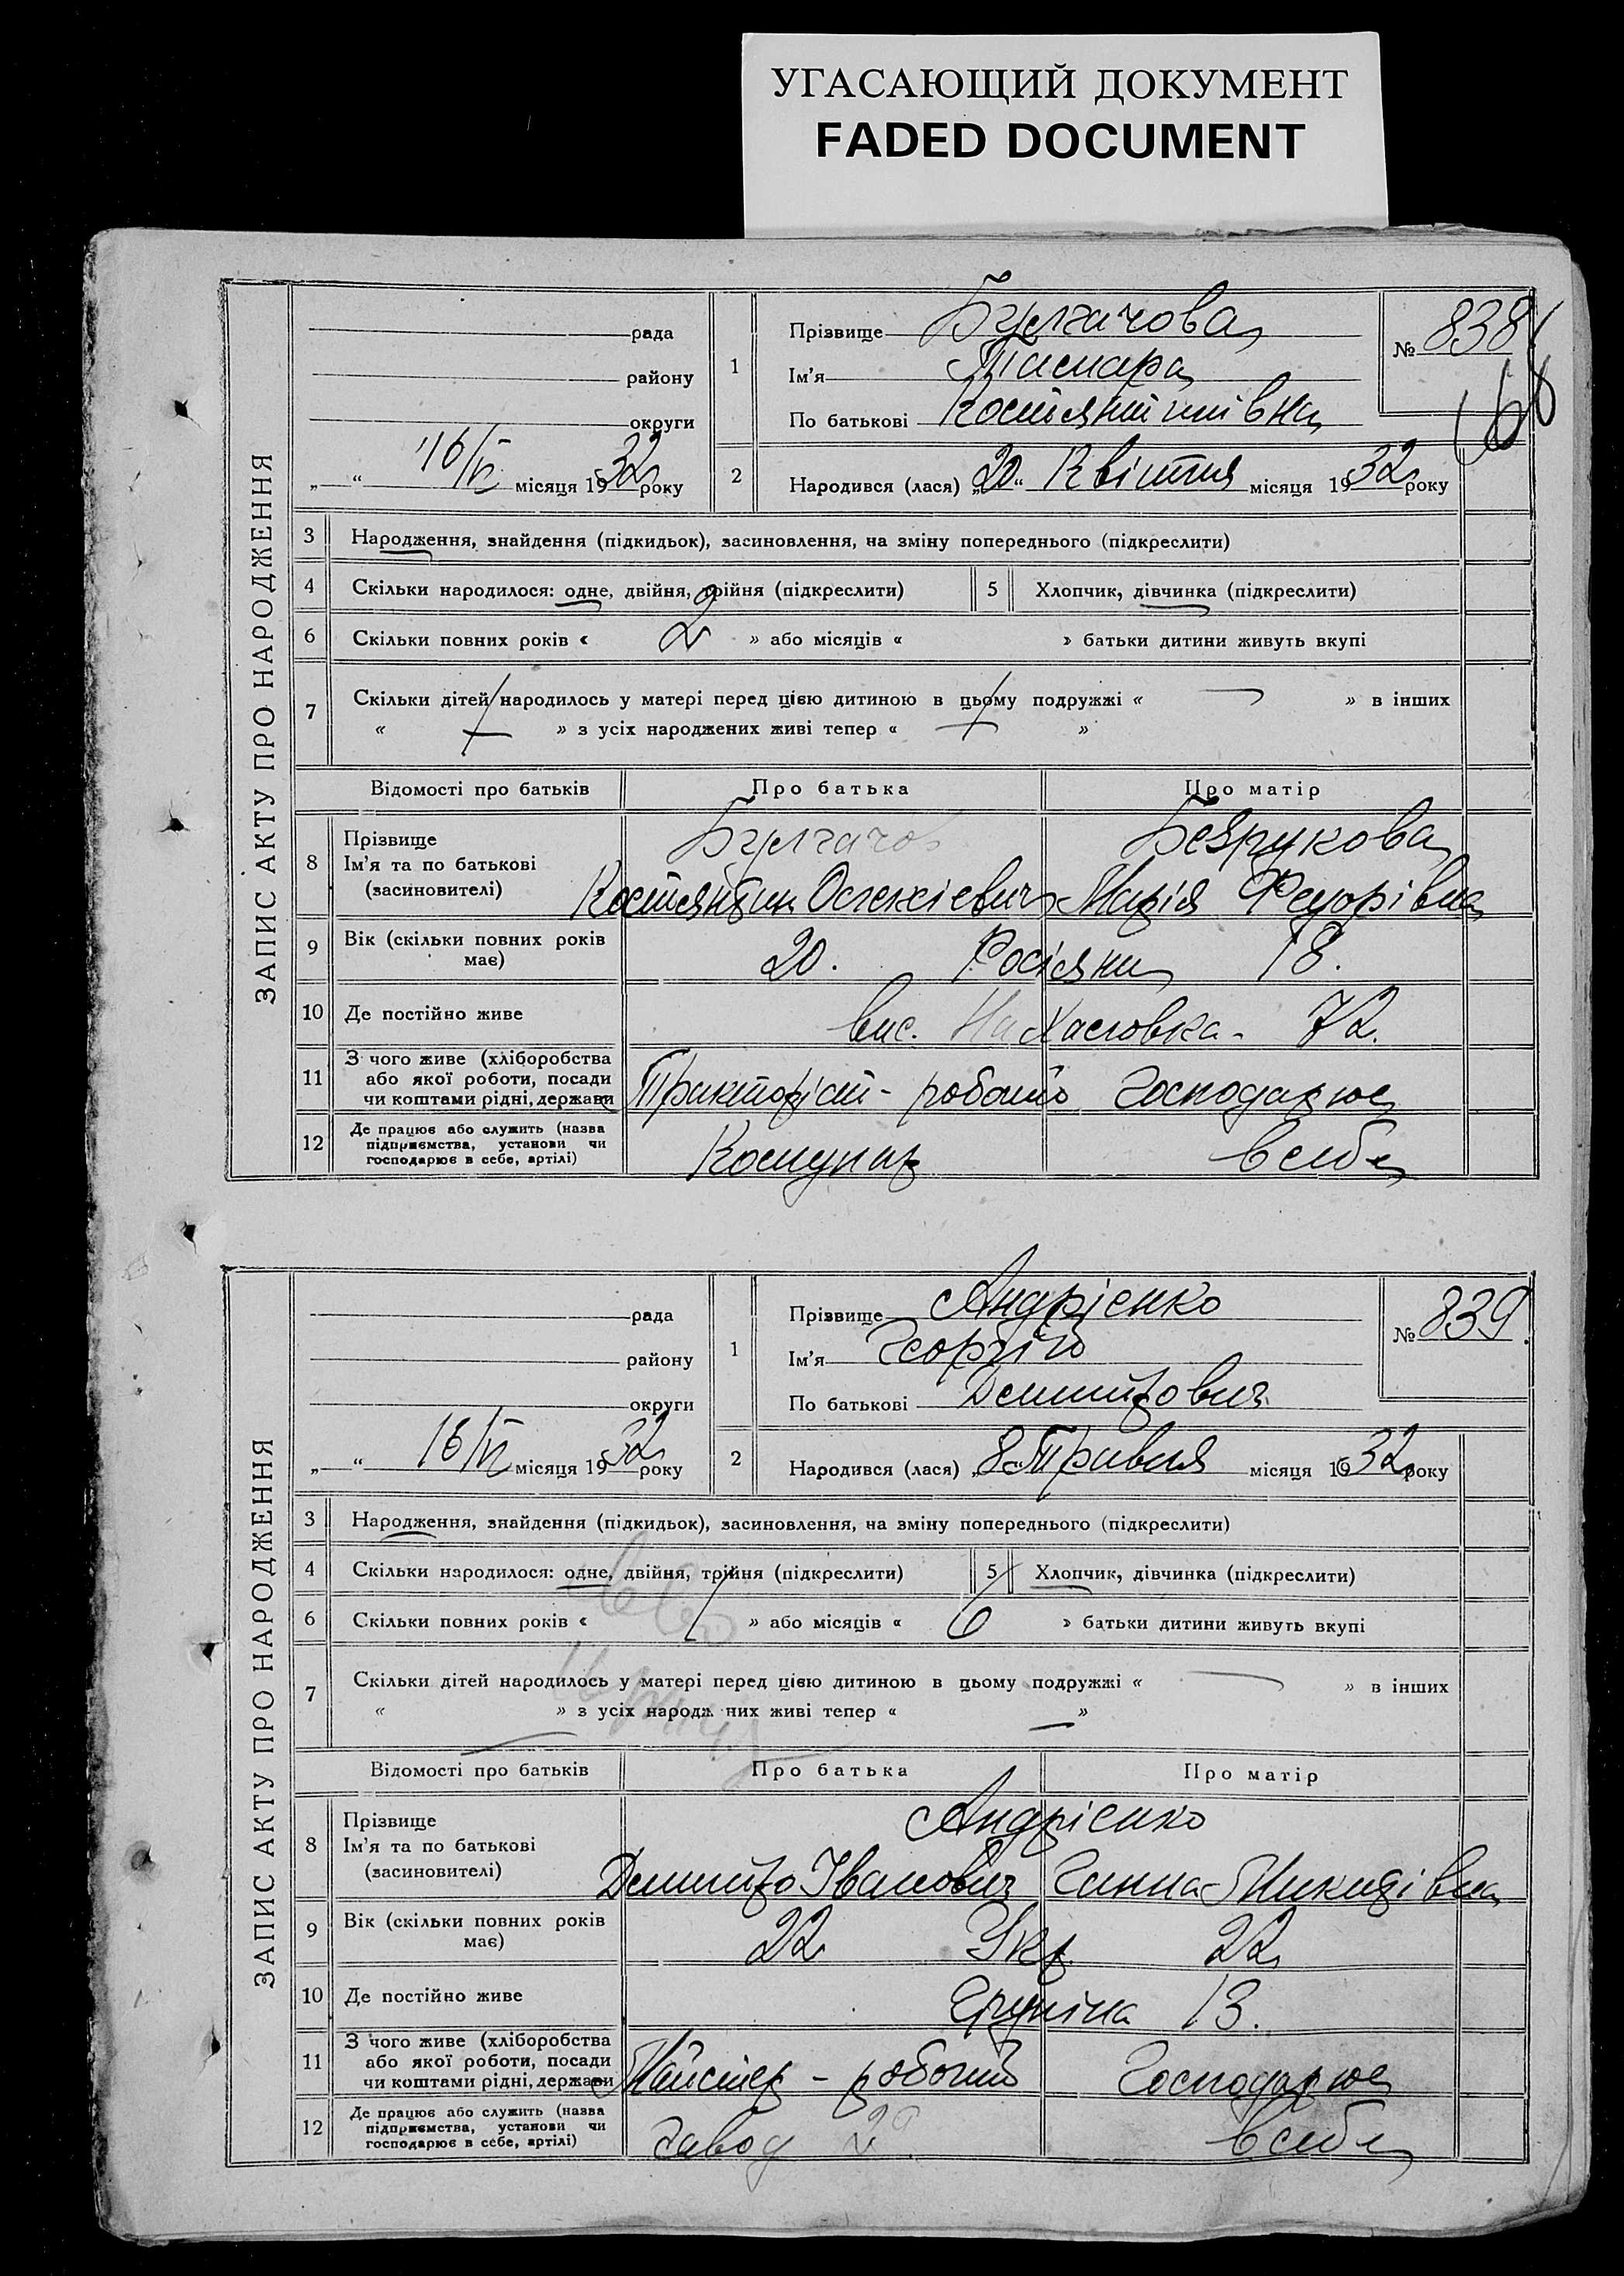 УГАСАЮЩИЙ ДОКУМЕНТ
FADED DOCUMENT
ЗАПИС АКТУ ПРО НАРОДЖЕННЯ
рада
району
округи
„ “ 16/VI місяця 1932 року
1 Прізвище Булгачова
Ім'я Тамара
По батькові Костянтинівна
№ 838
2 Народився (лася) „20“ Квітня місяця 1932 року
3 Народження, знайдення (підкидьок), засиновлення, на зміну попереднього (підкреслити)
4 Скільки народилося: одне, двійня, трійня (підкреслити) 5 Хлопчик, дівчинка (підкреслити)
6 Скільки повних років « 2 » або місяців « » батьки дитини живуть вкупі
7 Скільки дітей народилось у матері перед цією дитиною в цьому подружжі « — » в інших
« — » з усіх народжених живі тепер « — »
Відомості про батьків Про батька Про матір
8 Прізвище Булгачов Безрукова
Ім'я та по батькові
(засиновителі) Костянтин Олексієвич Марія Федорівна
9 Вік (скільки повних років має) 20. Росіяни 18.
10 Де постійно живе вис. 72.
11 З чого живе (хліборобства або якої роботи, посади чи коштами рідні, держави Тракторіст - робочий Господарює
12 Де працює або служить (назва підприємства, установи чи господарює в себе, артілі) Комунар в себе
ЗАПИС АКТУ ПРО НАРОДЖЕННЯ
рада
району
округи
„ “ 16/VI місяця 1932 року
1 Прізвище Андрієнко
Ім'я Георгій
По батькові Дмитрович
№ 839.
2 Народився (лася) „8 Травня місяця 1932 року
3 Народження, знайдення (підкидьок), засиновлення, на зміну попереднього (підкреслити)
4 Скільки народилося: одне, двійня, трійня (підкреслити) 5 Хлопчик, дівчинка (підкреслити)
6 Скільки повних років « » або місяців « 6 » батьки дитини живуть вкупі
7 Скільки дітей народилось у матері перед цією дитиною в цьому подружжі « — » в інших
« — » з усіх народж них живі тепер « — »
Відомості про батьків Про батька Про матір
8 Прізвище Андрієнко
Ім'я та по батькові
(засиновителі) Дмитро Іванович Ганна Микидівна
9 Вік (скільки повних років має) 22 Укр. 22
10 Де постійно живе 13.
11 З чого живе (хліборобства або якої роботи, посади чи коштами рідні, держави Майстер - робочий Господарює
12 Де працює або служить (назва підприємства, установи чи господарює в себе, артілі) Завод в себе